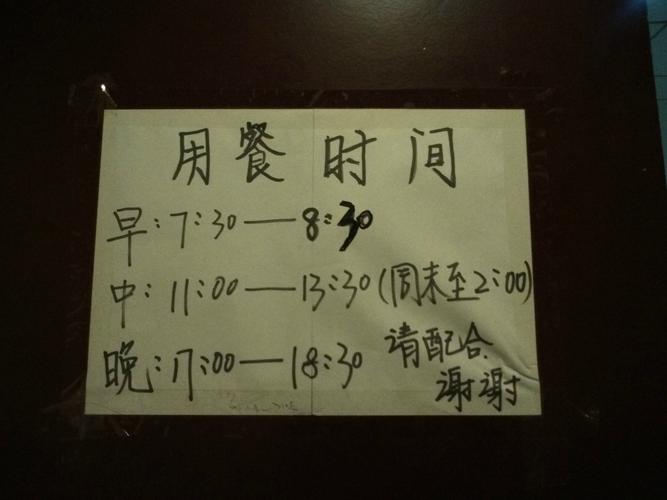 用餐时间
早:7:30——8:30
中:11:00——13:30(周末至2:00)
晚:17:00——18:30
请配合
谢谢